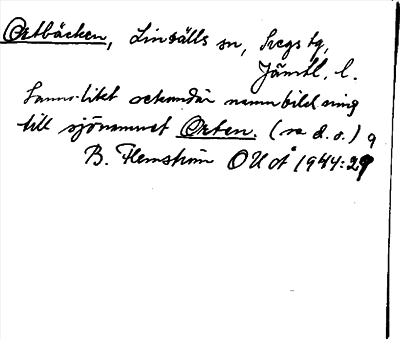 Ortbäcken, Linsälls sn, Svegs tg,
Jämtl. l.
Sannolikt sekundär namnbildning
till sjönamnet Orten. (se d. o.)
B. Flemström OUÅ 1944: 29